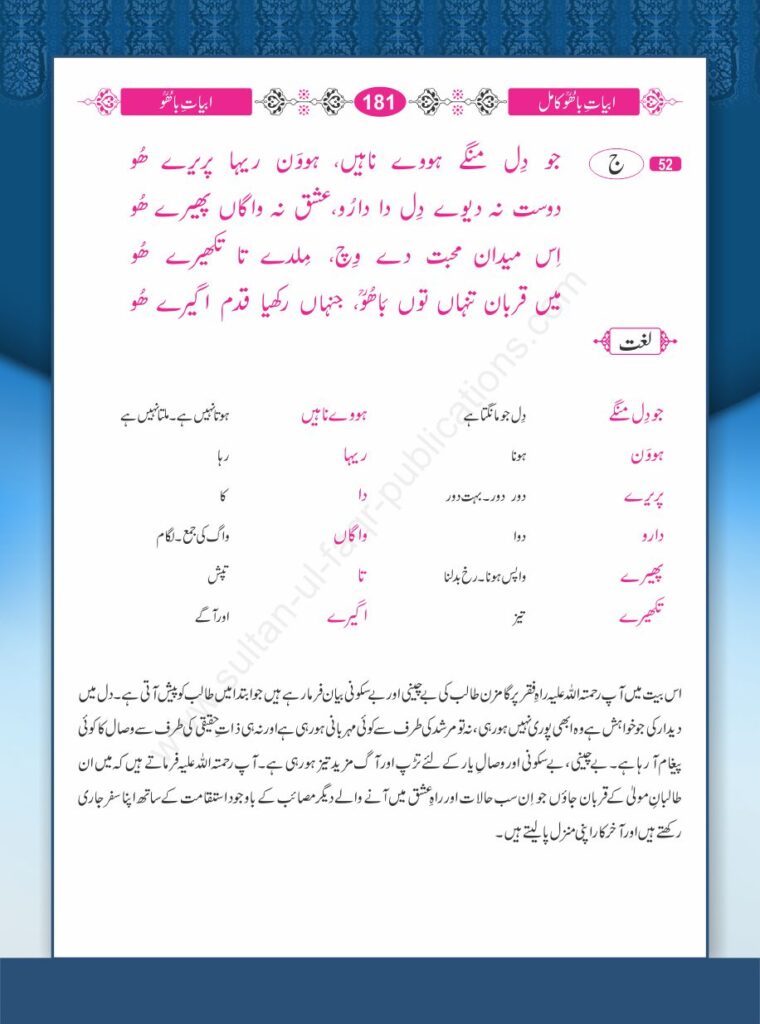 ابیاتِ باھُوؒ کامل 181 ابیاتِ باھُوؒ
52 ج جو دِل منگے ہووے ناہیں، ہووَن ریہا پریرے ھُو
دوست نہ دیوے دِل دا دارُو، عشق نہ واگاں پھیرے ھُو
اِس میدان محبت دے وِچ، مِلدے تا تکھیرے ھُو
میں قربان تنہاں توں بَاھُوؒ، جنہاں رکھیا قدم اگیرے ھُو
لغت
جو دِل منگے دِل جو مانگتا ہے ہووے ناہیں ہوتا نہیں ہے۔ ملتا نہیں ہے
ہووَن ہونا ریہا رہا
پریرے دور دور۔ بہت دور دا کا
دارو دوا واگاں واگ کی جمع۔ لگام
پھیرے واپس ہونا۔ رخ بدلنا تا تپش
تکھیرے تیز اگیرے اور آگے
اس بیت میں آپ رحمتہ اللہ علیہ راہِ فقر پر گامزن طالب کی بے چینی اور بے سکونی بیان فرما رہے ہیں جو ابتدا میں طالب کو پیش آتی ہے۔ دل میں
دیدار کی جو خواہش ہے وہ ابھی پوری نہیں ہو رہی، نہ تو مرشد کی طرف سے کوئی مہربانی ہو رہی ہے اور نہ ہی ذاتِ حقیقی کی طرف سے وصال کا کوئی
پیغام آ رہا ہے۔ بے چینی، بے سکونی اور وصالِ یار کے لئے تڑپ اور آگ مزید تیز ہو رہی ہے۔ آپ رحمتہ اللہ علیہ فرماتے ہیں کہ میں ان
طالبانِ مولیٰ کے قربان جاؤں جو اِن سب حالات اور راہِ عشق میں آنے والے دیگر مصائب کے باوجود استقامت کے ساتھ اپنا سفر جاری
رکھتے ہیں اور آخر کار اپنی منزل پا لیتے ہیں۔
www.sultan-ul-faqr-publications.com